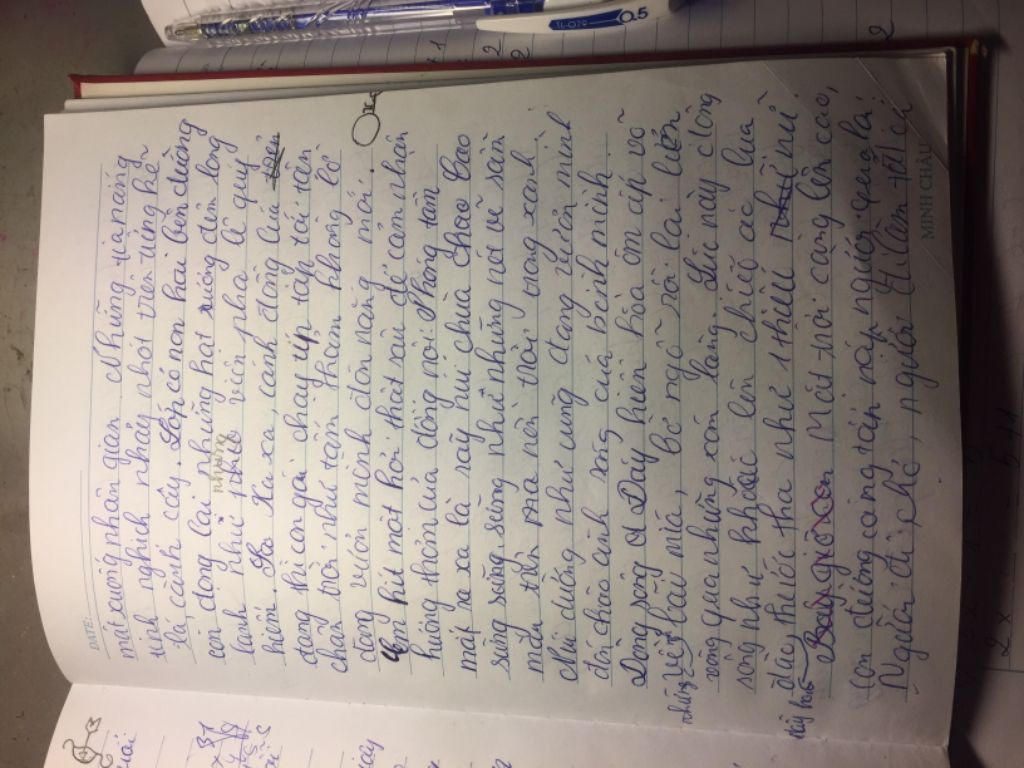 DATE:
mắt xuống nhân gian. Những tia nắng
tinh nghịch nhảy nhót trên từng kẽ
lá, cành cây. Lớp cỏ non hai bên đường
còn đọng lại những hạt sương đêm long
lanh như những viên pha lê quý
hiếm. Xa xa, cánh đồng lúa
đang thì con gái chạy tít tắp tới tận
chân trời như tấm thảm khổng lồ
đang vươn mình đón nắng mới.
Em hít một hơi thật sâu để cảm nhận
hương thơm của đồng nội. Phóng tầm
mắt ra xa là dãy núi chùa Chao cao
sừng sững như những nói về sàn
mềm trên của nền trời trong xanh
Núi dường như cũng đang vươn mình
để chào cuộc sống của bình minh.
Dòng sông Đáy hiền hòa ôm ấp vỗ
những bãi mía, bờ ngô rồi lại lượn
vòng qua những xóm làng. Lúc này dòng
sông như khoác lên chiếc áo lụa
đào, thướt tha như thiếu nữ
Mặt trời càng lên cao,
con đường càng tấp nập người qua lại.
Người đi bộ, người đi làm tất cả
MINH CHÂU
0.5